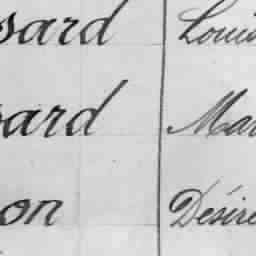 sard Louis
sard Mar
on Désiré